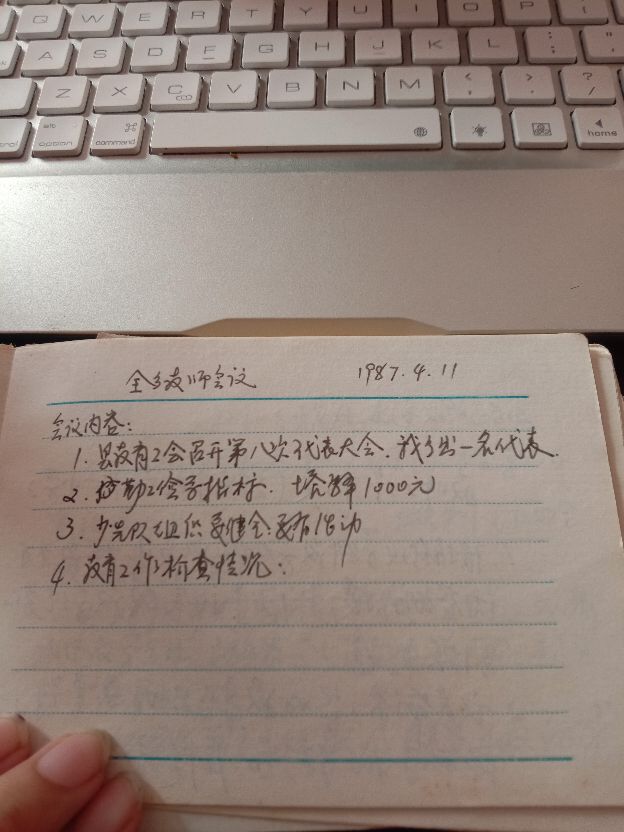 Q W E R T Y U I O P
A S D F G H J K L : ;
Z X C V B N M < , > . ? /
alt option command home
全乡教师会议 1987.4.11
会议内容:
1. 县教育工会召开第八次代表大会. 我乡出一名代表.
2. 勤工俭学指标. 1000元
3. 少先队组织要健全要有活动
4. 教育工作检查情况: